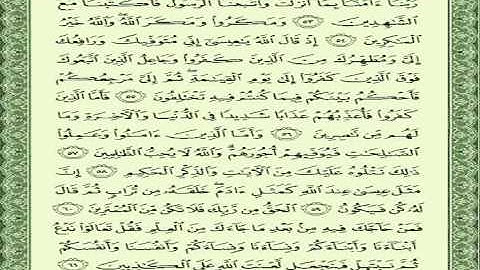 رَبَّنَآ ءَامَنَّا بِمَآ أَنزَلْتَ وَٱتَّبَعْنَا ٱلرَّسُولَ فَٱكْتُبْنَا مَعَ
ٱلشَّٰهِدِينَ ٥٣ وَمَكَرُوا۟ وَمَكَرَ ٱللَّهُ وَٱللَّهُ خَيْرُ
ٱلْمَٰكِرِينَ ٥٤ إِذْ قَالَ ٱللَّهُ يَٰعِيسَىٰٓ إِنِّى مُتَوَفِّيكَ وَرَافِعُكَ
إِلَىَّ وَمُطَهِّرُكَ مِنَ ٱلَّذِينَ كَفَرُوا۟ وَجَاعِلُ ٱلَّذِينَ ٱتَّبَعُوكَ
فَوْقَ ٱلَّذِينَ كَفَرُوٓا۟ إِلَىٰ يَوْمِ ٱلْقِيَٰمَةِ ثُمَّ إِلَىَّ مَرْجِعُكُمْ
فَأَحْكُمُ بَيْنَكُمْ فِيمَا كُنتُمْ فِيهِ تَخْتَلِفُونَ ٥٥ فَأَمَّا ٱلَّذِينَ
كَفَرُوا۟ فَأُعَذِّبُهُمْ عَذَابًا شَدِيدًا فِى ٱلدُّنْيَا وَٱلْءَاخِرَةِ وَمَا
لَهُم مِّن نَّٰصِرِينَ ٥٦ وَأَمَّا ٱلَّذِينَ ءَامَنُوا۟ وَعَمِلُوا۟
ٱلصَّٰلِحَٰتِ فَيُوَفِّيهِمْ أُجُورَهُمْ وَٱللَّهُ لَا يُحِبُّ ٱلظَّٰلِمِينَ ٥٧
ذَٰلِكَ نَتْلُوهُ عَلَيْكَ مِنَ ٱلْءَايَٰتِ وَٱلذِّكْرِ ٱلْحَكِيمِ ٥٨ إِنَّ
مَثَلَ عِيسَىٰ عِندَ ٱللَّهِ كَمَثَلِ ءَادَمَ خَلَقَهُۥ مِن تُرَابٍ ثُمَّ قَالَ
لَهُۥ كُن فَيَكُونُ ٥٩ ٱلْحَقُّ مِن رَّبِّكَ فَلَا تَكُن مِّنَ ٱلْمُمْتَرِينَ ٦٠
فَمَنْ حَآجَّكَ فِيهِ مِنۢ بَعْدِ مَا جَآءَكَ مِنَ ٱلْعِلْمِ فَقُلْ تَعَالَوْا۟ نَدْعُ
أَبْنَآءَنَا وَأَبْنَآءَكُمْ وَنِسَآءَنَا وَنِسَآءَكُمْ وَأَنفُسَنَا وَأَنفُسَكُمْ
ثُمَّ نَبْتَهِلْ فَنَجْعَل لَّعْنَتَ ٱللَّهِ عَلَى ٱلْكَٰذِبِينَ ٦١